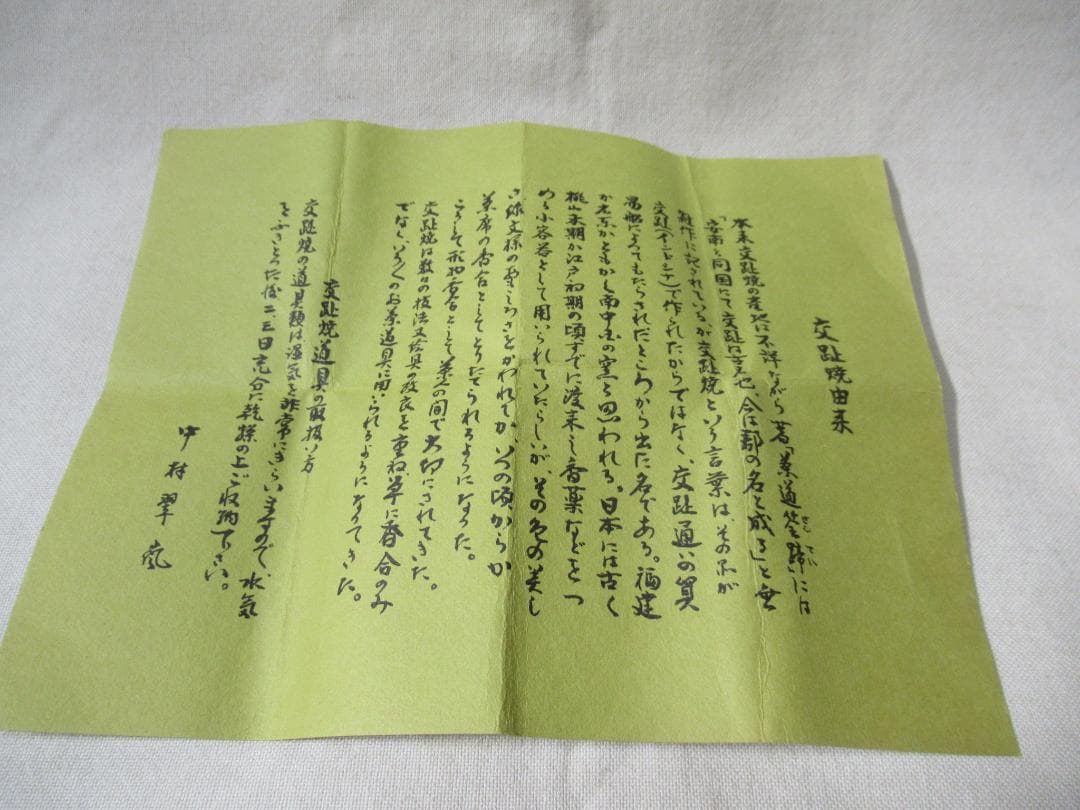 交趾焼由来
本来交趾焼の産地は不詳ながら 著「茶道筌蹄」には
せん てい
「安南と同国にて交趾は古也、今は郡の名と成る」と無
雑作に記されているが交趾焼という言葉は、その品が
交趾(インドシナ)で作られたからではなく、交趾通いの貿
易船によってもたらされたところから出た名である。福建
か広東かともかく南中国の窯と思われる。日本には古く
桃山末期か江戸初期の頃すでに渡来し香薬などをつ
めた小容器として用いられていたらしいが、その色の美し
さ 文様の更しろさをかわれてか、いつの頃からか
茶席の香合としてとりたてられるようになった。
こうして形物香合として茶人の間で大切にされてきた。
交趾焼は数々の技法又絵具の改良を重ね、単に香合のみ
でなく、いろいろのお茶道具に用いられるようになってきた。
交趾焼道具の取扱い方
交趾焼の道具類は湿気を非常にきらいますので、水気
をふきとった後二、三日充分に乾燥の上ご収納下さい。
中村翠嵐